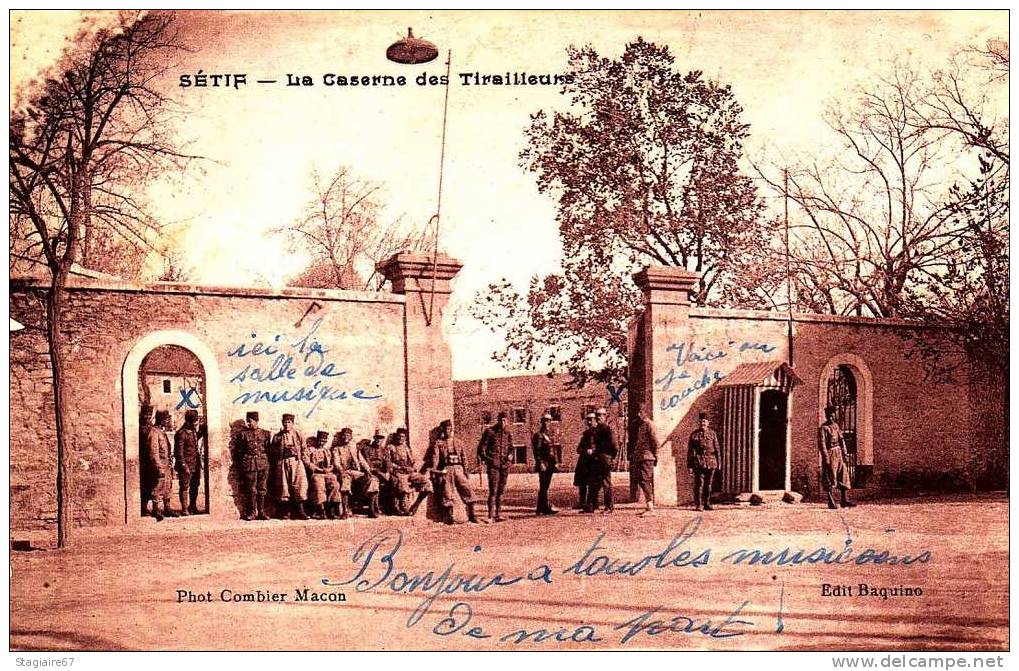 SÉTIF — La Caserne des Tirailleurs
ici la
salle de
musique
X
X
Voici ou
je
couche
Bonjour a tous les musiciens
De ma part !
Phot Combier Macon
Edit Baquino
Stagiaire67
delcampe.net